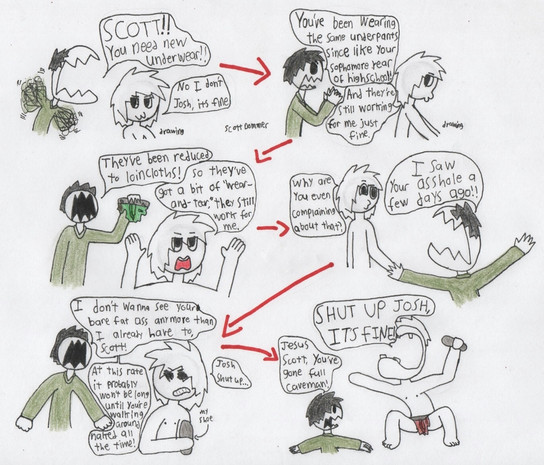 SCOTT!!
You need new
underwear!!
No I don't
Josh, its fine
drawing
Scott Dammer
You've been wearing
the same underpants
since like your
sophamore year
of highschool!
And they're
still working
for me just
fine.
drawing
They've been reduced
to loincloths!
So they've
got a bit of "wear-
and-tear," they still
work for
me.
Why are
you even
complaining
about that?
I saw
Your asshole a
few days ago!!
I don't wanna see your
bare fat ass anymore than
I alreay have to,
Scott!
At this rate
it probably
won't be long
until you're
walking
around
naked all
the time!
Josh
shut up...
my
shoe
Jesus
Scott, You've
gone full
caveman!
SHUT UP JOSH,
ITS FINE!